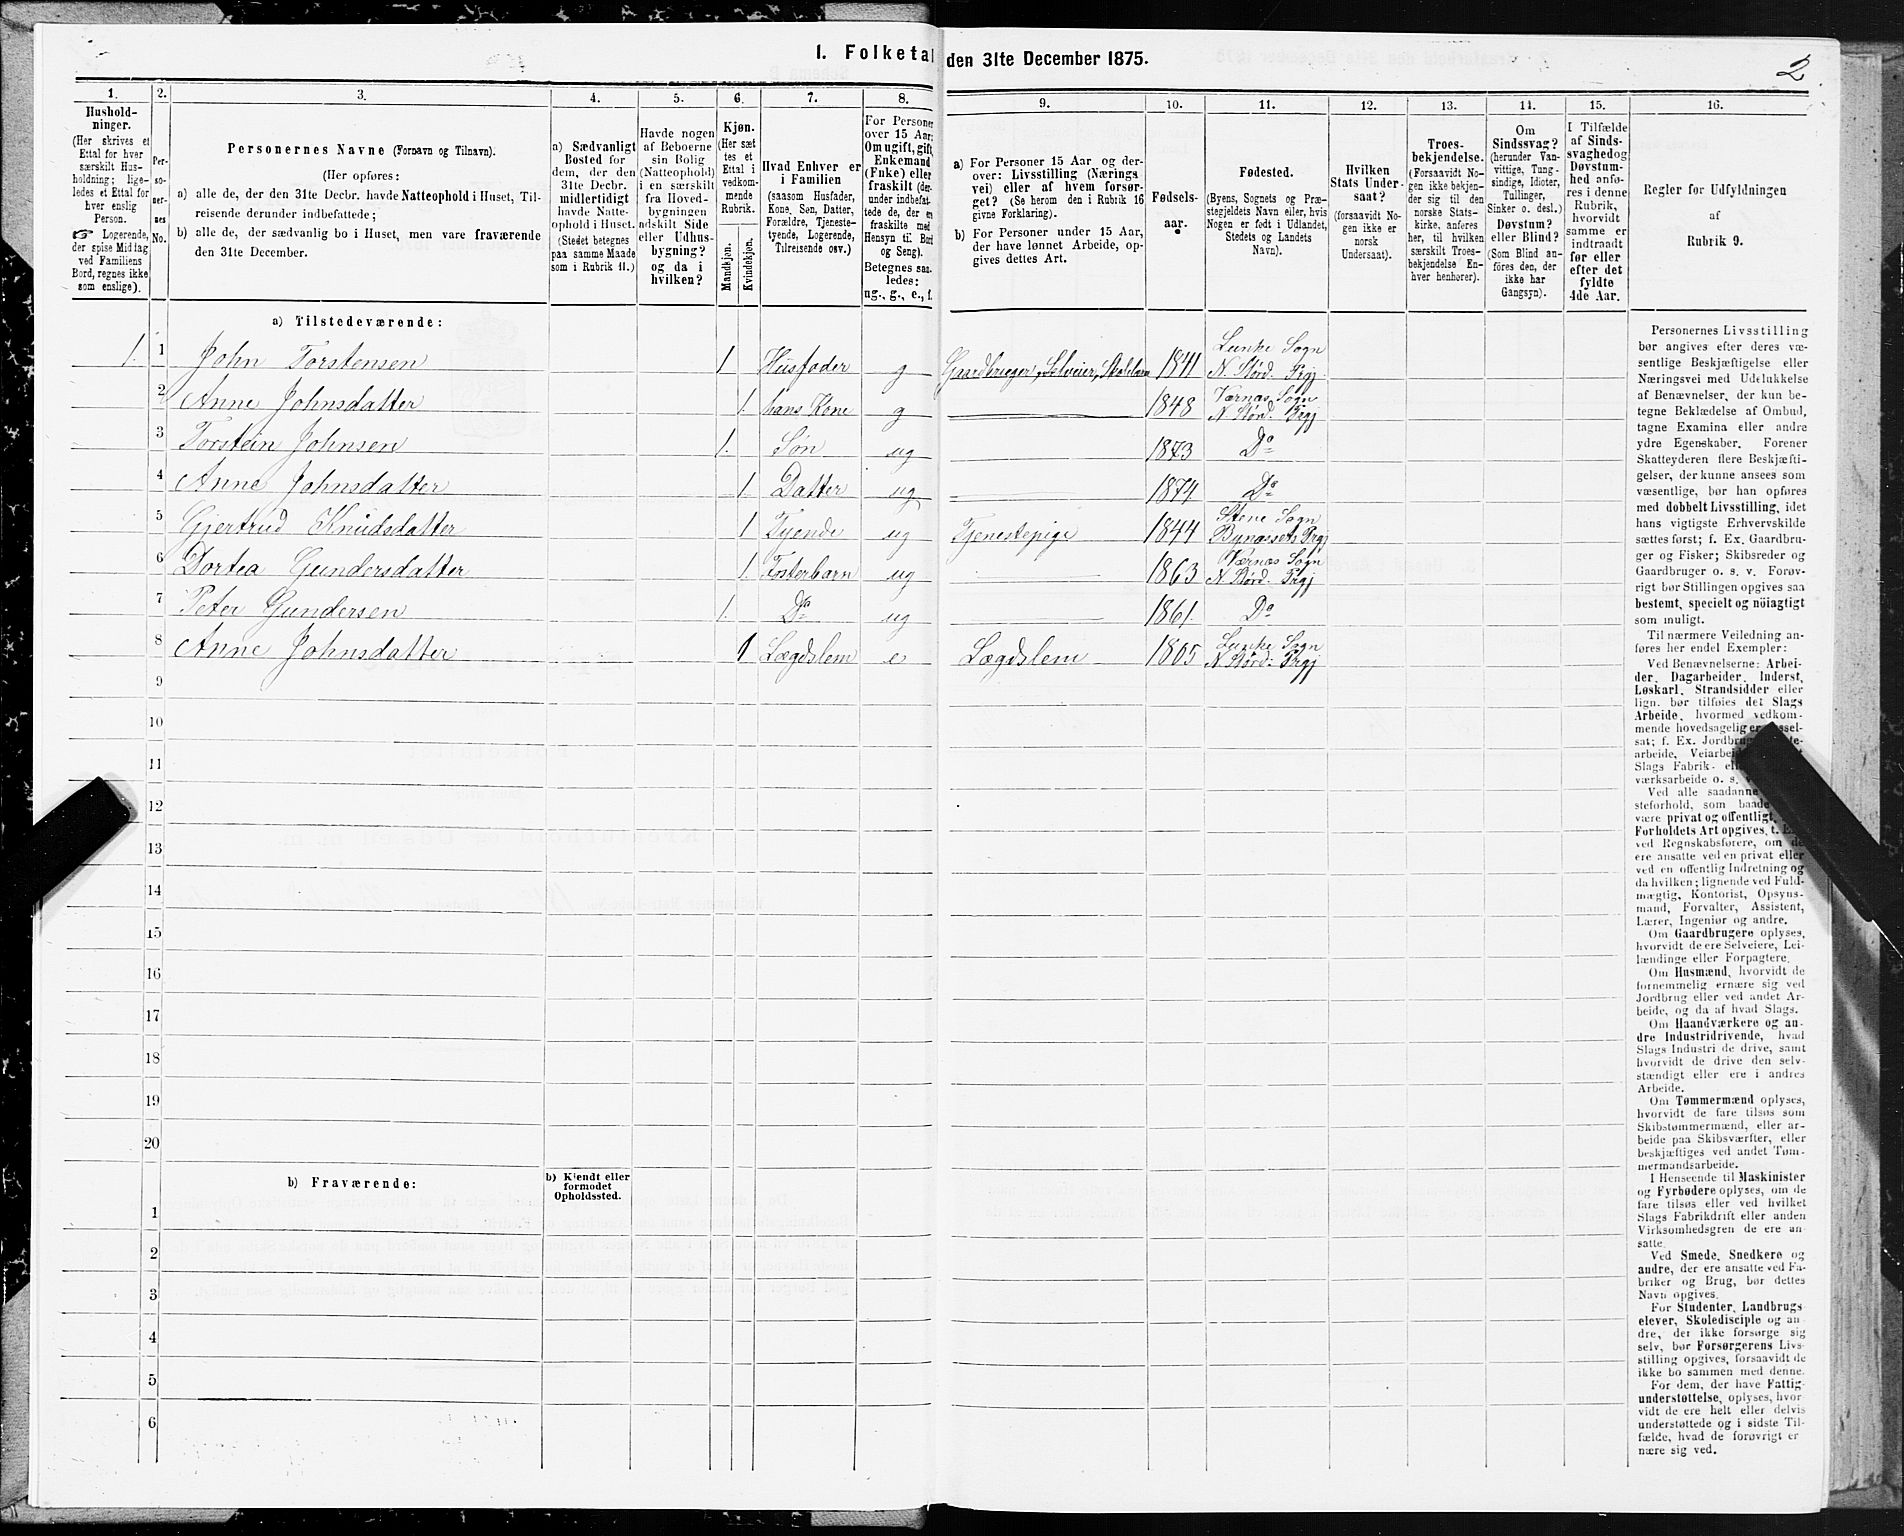 I. Folketal den 31te December 1875.
2
1.
2.
3.
4.
5.
6.
7.
8.
9.
10.
11.
12.
13.
14.
15.
16.
Hushold-
ninger.
(Her skrives et
Ettal for hver
særskilt Hus-
holdning; lige-
ledes et Ettal for
hver enslig
Person.
☞ Logerende,
der spise Middag
ved Familiens
Bord, regnes ikke
som enslige).
Per-
so-
ner-
nes
No.
Personernes Navne (Fornavn og Tilnavn).
(Her opføres:
a) alle de, der den 31te Decbr. havde Natteophold i Huset, Til-
reisende derunder indbefattede;
b) alle de, der sædvanlig bo i Huset, men vare fraværende
den 31te December.
a) Sædvanligt
Bosted for
dem, der den
31te Decbr.
midlertidigt
havde Natte-
ophold i Huset.
(Stedet betegnes
paa samme Maade
som i Rubrik 11.)
Havde nogen
af Beboerne
sin Bolig
(Natteophold)
i en særskilt
fra Hoved-
bygningen
adskilt Side
eller Udhus-
bygning?
og da i
hvilken?
Kjøn.
(Her sæt
tes et
Ettal i
vedkom-
mende
Rubrik.
Mandkjøn.
Kvindekjøn.
Hvad Enhver er
i Familien
(saasom Husfader,
Kone, Søn, Datter,
Forældre, Tjeneste-
tyende, Logerende,
Tilreisende osv.)
For Personer
over 15 Aar:
Om ugift, gift,
Enkemand
(Enke) eller
fraskilt (der-
under indbefat-
tede de, der er
fraskilte med
Hensyn til Bord
og Seng).
Betegnes saa-
ledes:
ug., g., e., f.
a) For Personer 15 Aar og der-
over: Livsstilling (Nærings-
vei) eller af hvem forsør-
get? (Se herom den i Rubrik 16
givne Forklaring).
b) For Personer under 15 Aar,
der have lønnet Arbeide, op-
gives dettes Art.
Fødsels-
aar.
Fødested.
(Byens, Sognets og Præ-
stegjeldets Navn eller, hvis
Nogen er født i Udlandet,
Stedets og Landets
Navn).
Hvilken
Stats Under-
saat?
(forsaavidt No-
gen ikke er
norsk
Undersaat).
Troes-
bekjendelse.
(Forsaavidt No-
gen ikke bekjen-
der sig til den
norske Stats-
kirke, anføres
her, til hvilken
særskilt Troes-
bekjendelse En-
hver henhører).
Om
Sindssvag?
(herunder Van-
vittige, Tung-
sindige, Idioter,
Tullinger,
Sinker o. desl.)
Døvstum?
eller Blind?
(Som Blind an-
føres den, der
ikke har
Gangsyn).
I Tilfælde
af Sinds-
svaghed og
Døvstum-
hed anfø-
res i denne
Rubrik,
hvorvidt
samme er
indtraadt
før eller
efter det
fyldte
4de Aar.
Regler for Udfyldningen
af
Rubrik 9.
a) Tilstedeværende:
1. 1 John Torstensen 1 Husfader g Gaardbruger, Selveier, 1841 Lunke Sogn
N. Størd. Prgj
2 Anne Johnsdatter 1. hans Kone g 1848 Værnas Sogn
N. Størd. Prgj
3 Torstein Johnsen 1. Søn ug 1873 Do
4 Anne Johnsdatter 1. Datter ug 1874 Do
5 Gjertrud Knudsdatter 1 Tyende ug Tjenestepige 1844 Stene Sogn
Bynæssets Prgj
6 Dortea Gundersdatter 1. Fosterbarn ug 1863 Værnas Sogn
N. Størd. Prgj
7 Peter Gundersen 1. Do ug 1861. Do
8 Anne Johnsdatter 1 Lægdslem e Lægdslem 1805 Lunke Sogn
N. Størd. Prgj
9
10
11
12
13
14
15
16
17
18
19
20
b) Fraværende:
b) Kjendt eller
formodet
Opholdssted.
1
2
3
4
5
6
Personernes Livsstilling
bør angives efter deres væ-
sentlige Beskjæftigelse eller
Næringsvei med Udelukkelse
af Benævnelser, der kun be-
tegne Beklædelse af Ombud,
tagne Examina eller andre
ydre Egenskaber. Forener
Skatteyderen flere Beskjæfti-
gelser, der kunne ansees som
væsentlige, bør han opføres
med dobbelt Livsstilling, idet
hans vigtigste Erhvervskilde
sættes først; f. Ex. Gaardbru-
ger og Fisker; Skibsreder og
Gaardbruger o. s. v. Forøv-
rigt bør Stillingen opgives saa
bestemt, specielt og nøiagtigt
som muligt.
Til nærmere Veiledning an-
føres her endel Exempler:
Ved Benævnelserne: Arbei-
der, Dagarbeider, Inderst,
Løskarl, Strandsidder eller
lign. bør tilføies det Slags
Arbeide, hvormed vedkom-
mende hovedsagelig er syssel-
sat; f. Ex. Jordbrug,
arbeide, Veiarbeide,
Slags Fabrik-
værksarbeide o. s. v.
Ved alle saadanne
steforhold, som baade
være privat og offentligt,
Forholdets Art opgives, t. Ex.
ved Regnskabsførere, om de
ere ansatte ved en privat eller
ved en offentlig Indretning og
da hvilken; lignende ved Fuld-
mægtig, Kontorist, Opsyns-
mand, Forvalter, Assistent,
Lærer, Ingeniør og andre.
Om Gaardbrugere oplyses,
hvorvidt de ere Selveiere, Lei-
lændinge eller Forpagtere.
Om Husmænd, hvorvidt de
fornemmelig ernære sig ved
Jordbrug eller ved andet Ar-
beide, og da af hvad Slags.
Om Haandværkere og an-
dre Industridrivende, hvad
Slags Industri de drive, samt
hvorvidt de drive den selv-
stændigt eller ere i andres
Arbeide.
Om Tømmermænd oplyses,
hvorvidt de fare tilsøs som
Skibstømmermænd, eller ar-
beide paa Skibsværfter, eller
beskjæftiges ved andet Tøm-
mermandsarbeide.
I Henseende til Maskinister
og Fyrbødere oplyses, om de
fare tilsøs eller ved hvilket
Slags Fabrikdrift eller anden
Virksomhedsgren de ere an-
satte.
Ved Smede, Snedkere og
andre, der ere ansatte ved Fa-
briker og Brug, bør dettes
Navn opgives.
For Studenter, Landbrugs-
elever, Skoledisciple og an-
dre, der ikke forsørge sig
selv, bør Forsørgerens Livs-
stilling opgives, forsaavidt de
ikke bo sammen med denne.
For dem, der have Fattig-
understøttelse, oplyses, hvor-
vidt de ere helt eller delvis
understøttede og i sidste Til-
fælde, hvad de forøvrigt er-
nære sig ved.